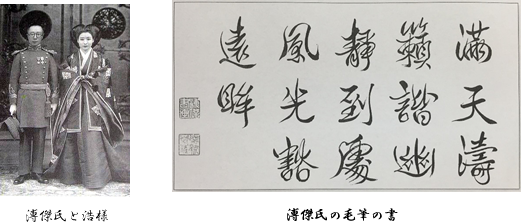 滿天濤
籟諧幽
靜到處
風光豁
遠眸
溥傑氏と浩様
溥傑氏の毛筆の書